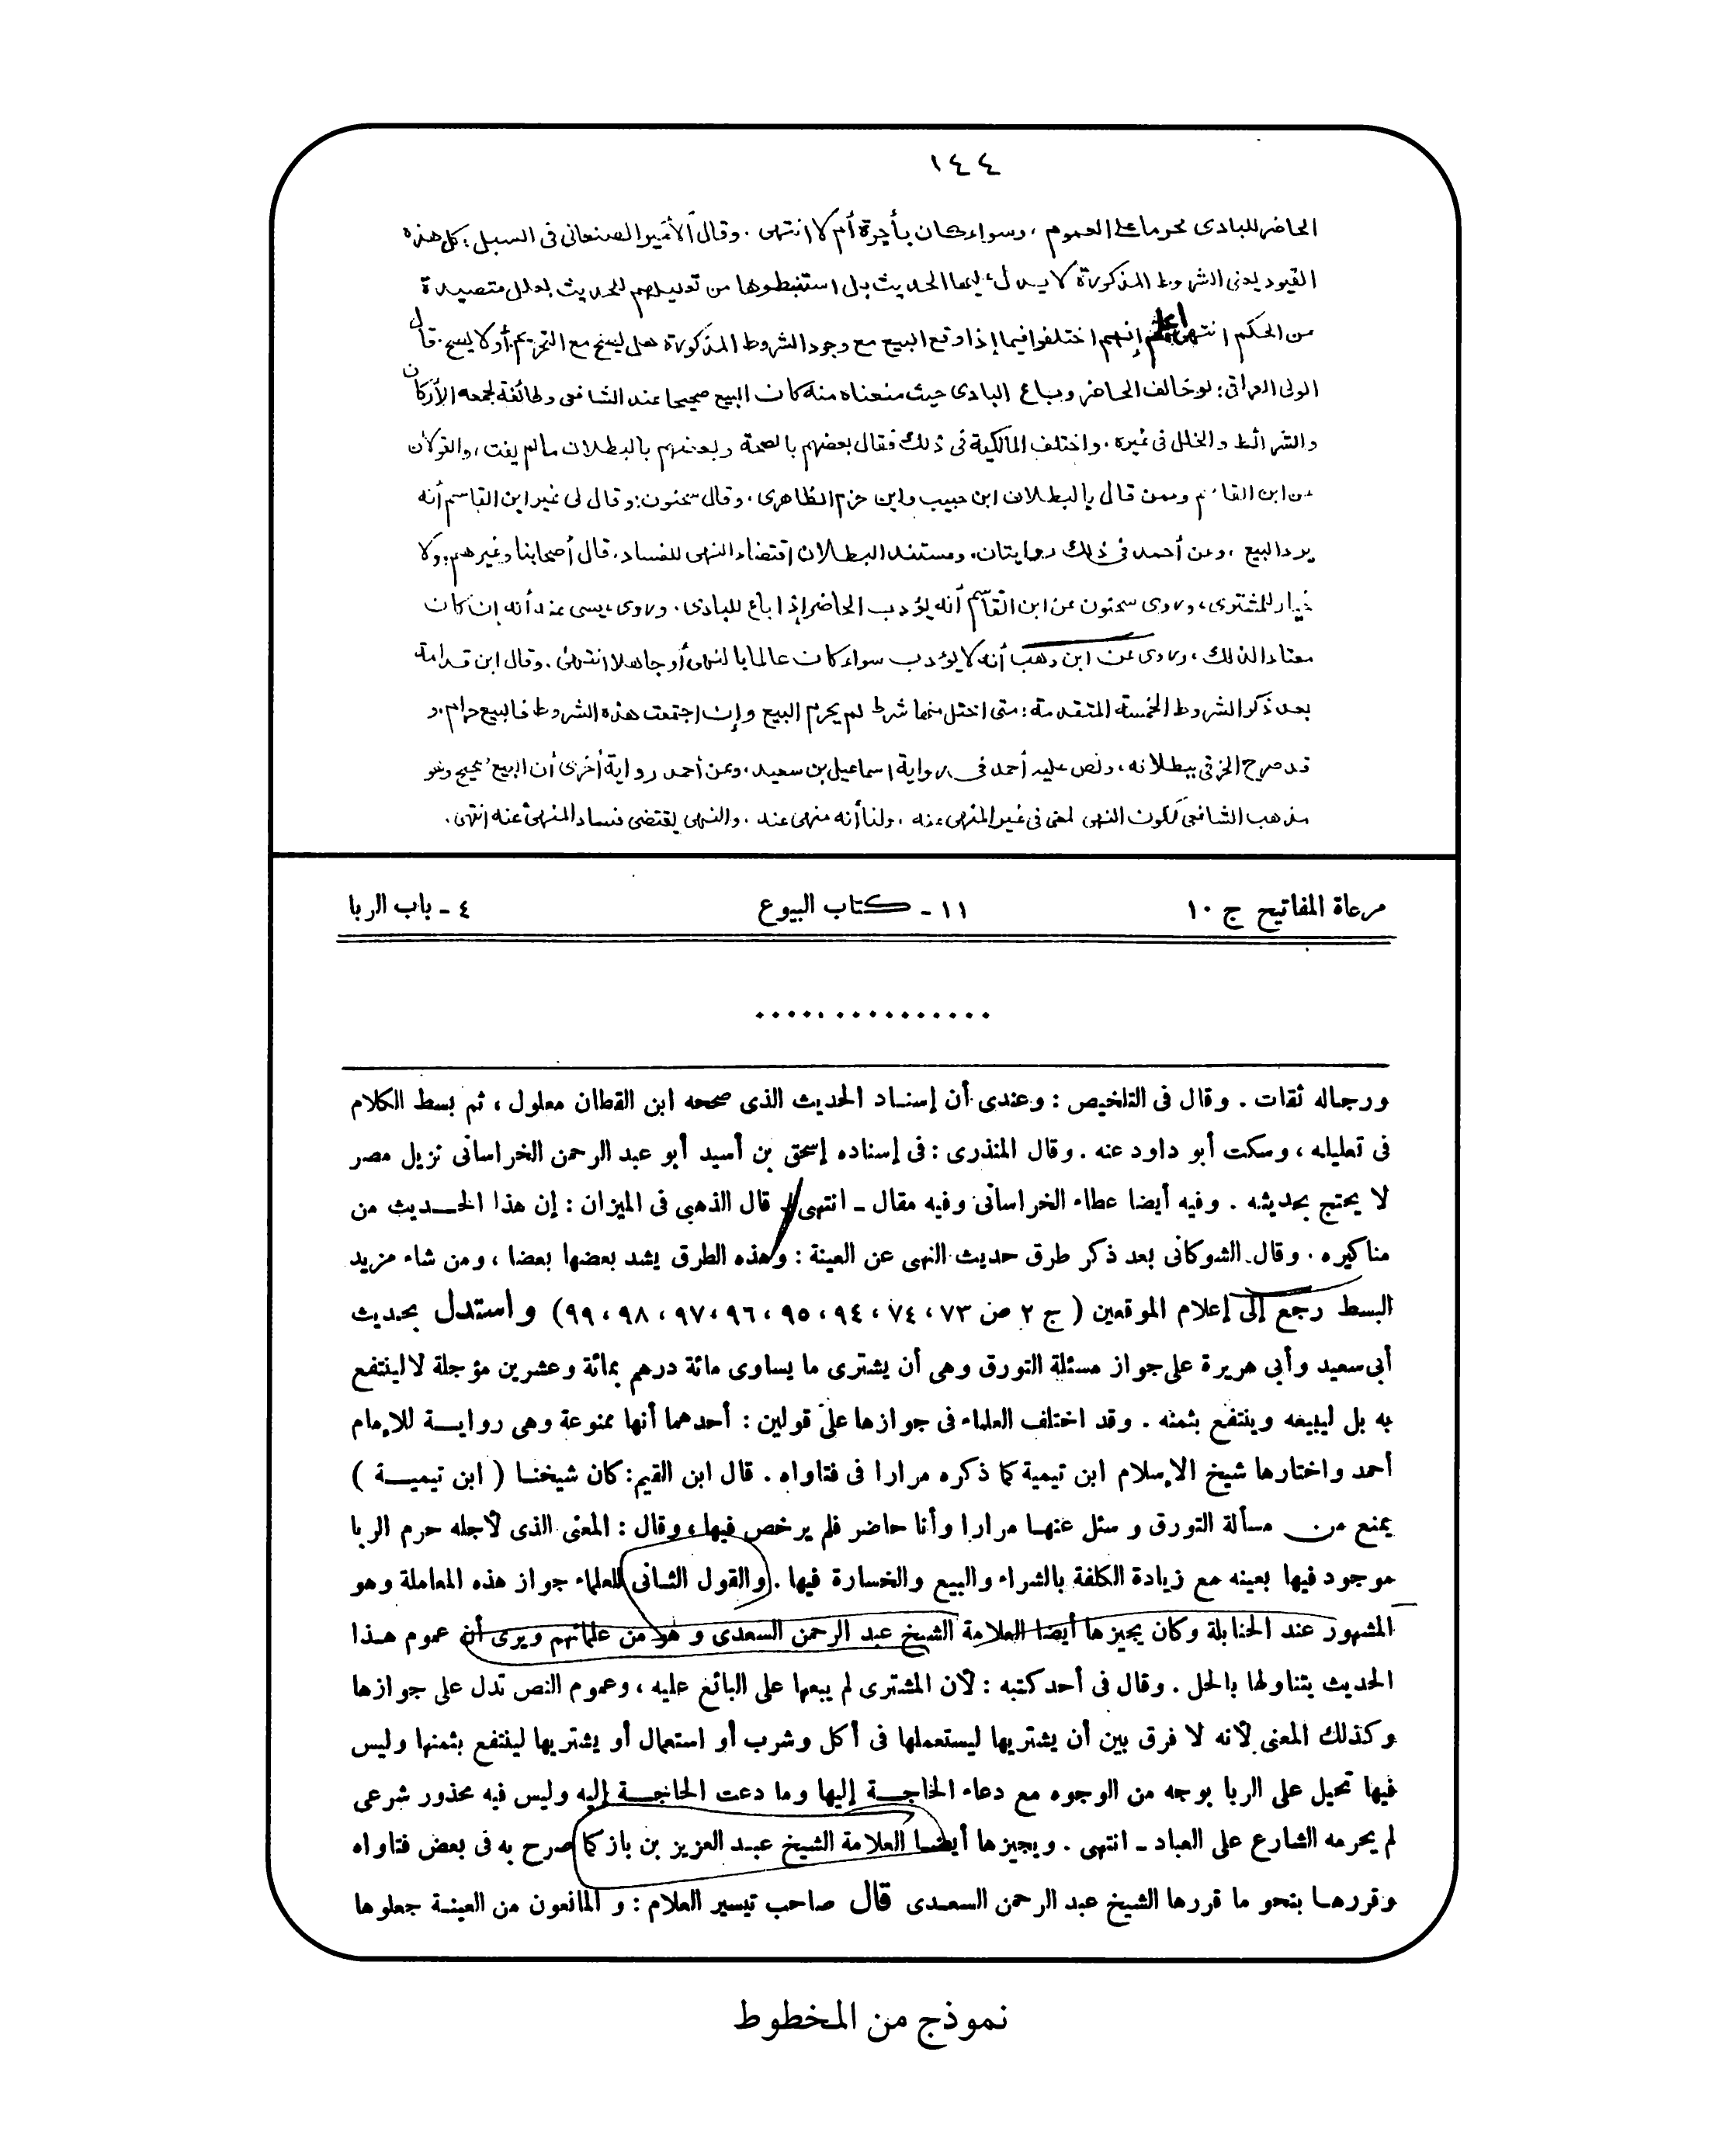 ١٤٤
الحاضر للبادى محرما على العموم ، وسواء كان بأجرة أم لا انتهى . وقال الأمير الصنعانى فى السبل : كل هذه
القيود يعنى الشروط المذكورة لا يدل عليها الحديث بل استنبطوها من تعليلهم للحديث بعلل متصيدة
من الحكم انتهى اعلم إنهم اختلفوا فيما إذا وقع البيع مع وجود الشروط المذكورة هل يصح مع التحريم أو لا يصح . قال
الولى العراقى : لو خالف الحاضر وباع البادى حيث منعناه منه كان البيع صحيحا عند الشافعى وطائفة لجمعه الأركان
والشرائط والخلل فى غيره . واختلف المالكية فى ذلك فقال بعضهم بالصحة وبعضهم بالبطلان مالم يفت ، والقولان
عن ابن القاسم وممن قال بالبطلان ابن حبيب وابن حزم الظاهرى . وقال سحنون : وقال لى غير ابن القاسم أنه
يرد البيع ، وعن أحمد فى ذلك روايتان . ومستند البطلان اقتضاء النهى للفساد . قال أصحابنا وغيرهم : ولا
خيار للمشترى ، وروى سحنون عن ابن القاسم أنه يؤدب الحاضر إذا باع للبادى . وروى عيسى عنه أنه إن كان
معتادا لذلك ، وروى عن ابن وهب أنه لا يؤدب سواء كان عالما بالنهى أو جاهلا انتهى . وقال ابن قدامة
بعد ذكر الشروط الخمسة المتقدمة : متى اختل منها شرط لم يحرم البيع وإن اجتمعت هذه الشروط فالبيع حرام . و
قد صرح الخرقى ببطلانه ، ونص عليه أحمد فى رواية اسماعيل بن سعيد . وعن أحمد رواية أخرى أن البيع صحيح وهو
مذهب الشافعى لكون النهى لمعنى فى غير المنهى عنه . ولنا أنه منهى عنه . والنهى يقتضى فساد المنهى عنه انتهى .
مرعاة المفاتيح ج ١٠
١١ - كتاب البيوع
٤ - باب الربا
...............
ورجاله ثقات . وقال فى التلخيص : وعندى أن إسناد الحديث الذى صححه ابن القطان معلول ، ثم بسط الكلام
فى تعليله ، وسكت أبو داود عنه . وقال المنذرى : فى إسناده إسحق بن أسيد أبو عبد الرحمن الخراسانى نزيل مصر
لا يحتج بحديثه . وفيه أيضا عطاء الخراسانى وفيه مقال - انتهى قال الذهبى فى الميزان : إن هذا الحديث من
مناكيره . وقال الشوكانى بعد ذكر طرق حديث النهى عن العينة : وهذه الطرق يشد بعضها بعضا ، ومن شاء مزيد
البسط رجع إلى إعلام الموقعين ( ج ٢ ص ٧٣ ، ٧٤ ، ٩٤ ، ٩٥ ، ٩٦ ، ٩٧ ، ٩٨ ، ٩٩ ) واستدل بحديث
أبى سعيد وأبى هريرة على جواز مسئلة التورق وهى أن يشترى ما يساوى مائة درهم بمائة وعشرين مؤجلة لا لينتفع
به بل ليبيعه وينتفع بثمنه . وقد اختلف العلماء فى جوازها على قولين : أحدهما أنها ممنوعة وهى رواية للإمام
أحمد واختارها شيخ الإسلام ابن تيمية كما ذكره مرارا فى فتاواه . قال ابن القيم : كان شيخنا ( ابن تيمية )
يمنع من مسألة التورق وسئل عنها مرارا وأنا حاضر فلم يرخص فيها ، وقال : المعنى الذى لأجله حرم الربا
موجود فيها بعينه مع زيادة الكلفة بالشراء والبيع والخسارة فيها . والقول الثانى للعلماء جواز هذه المعاملة وهو
المشهور عند الحنابلة وكان يجيزها أيضا العلامة الشيخ عبد الرحمن السعدى وهو من علمائهم ويرى أن عموم هذا
الحديث يتناولها بالحل . وقال فى أحد كتبه : لأن المشترى لم يبعها على البائع عليه ، وعموم النص تدل على جوازها
وكذلك المعنى لأنه لا فرق بين أن يشتريها ليستعملها فى أكل وشرب أو استعمال أو يشتريها لينتفع بثمنها وليس
فيها تحيل على الربا بوجه من الوجوه مع دعاء الحاجة إليها وما دعت الحاجة إليه وليس فيه محذور شرعى
لم يحرمه الشارع على العباد - انتهى . ويجيزها أيضا العلامة الشيخ عبد العزيز بن باز كما صرح به فى بعض فتاواه
وقررها بنحو ما قررها الشيخ عبد الرحمن السعدى قال صاحب تيسير العلام : و المانعون من العينة جعلوها
نموذج من المخطوط